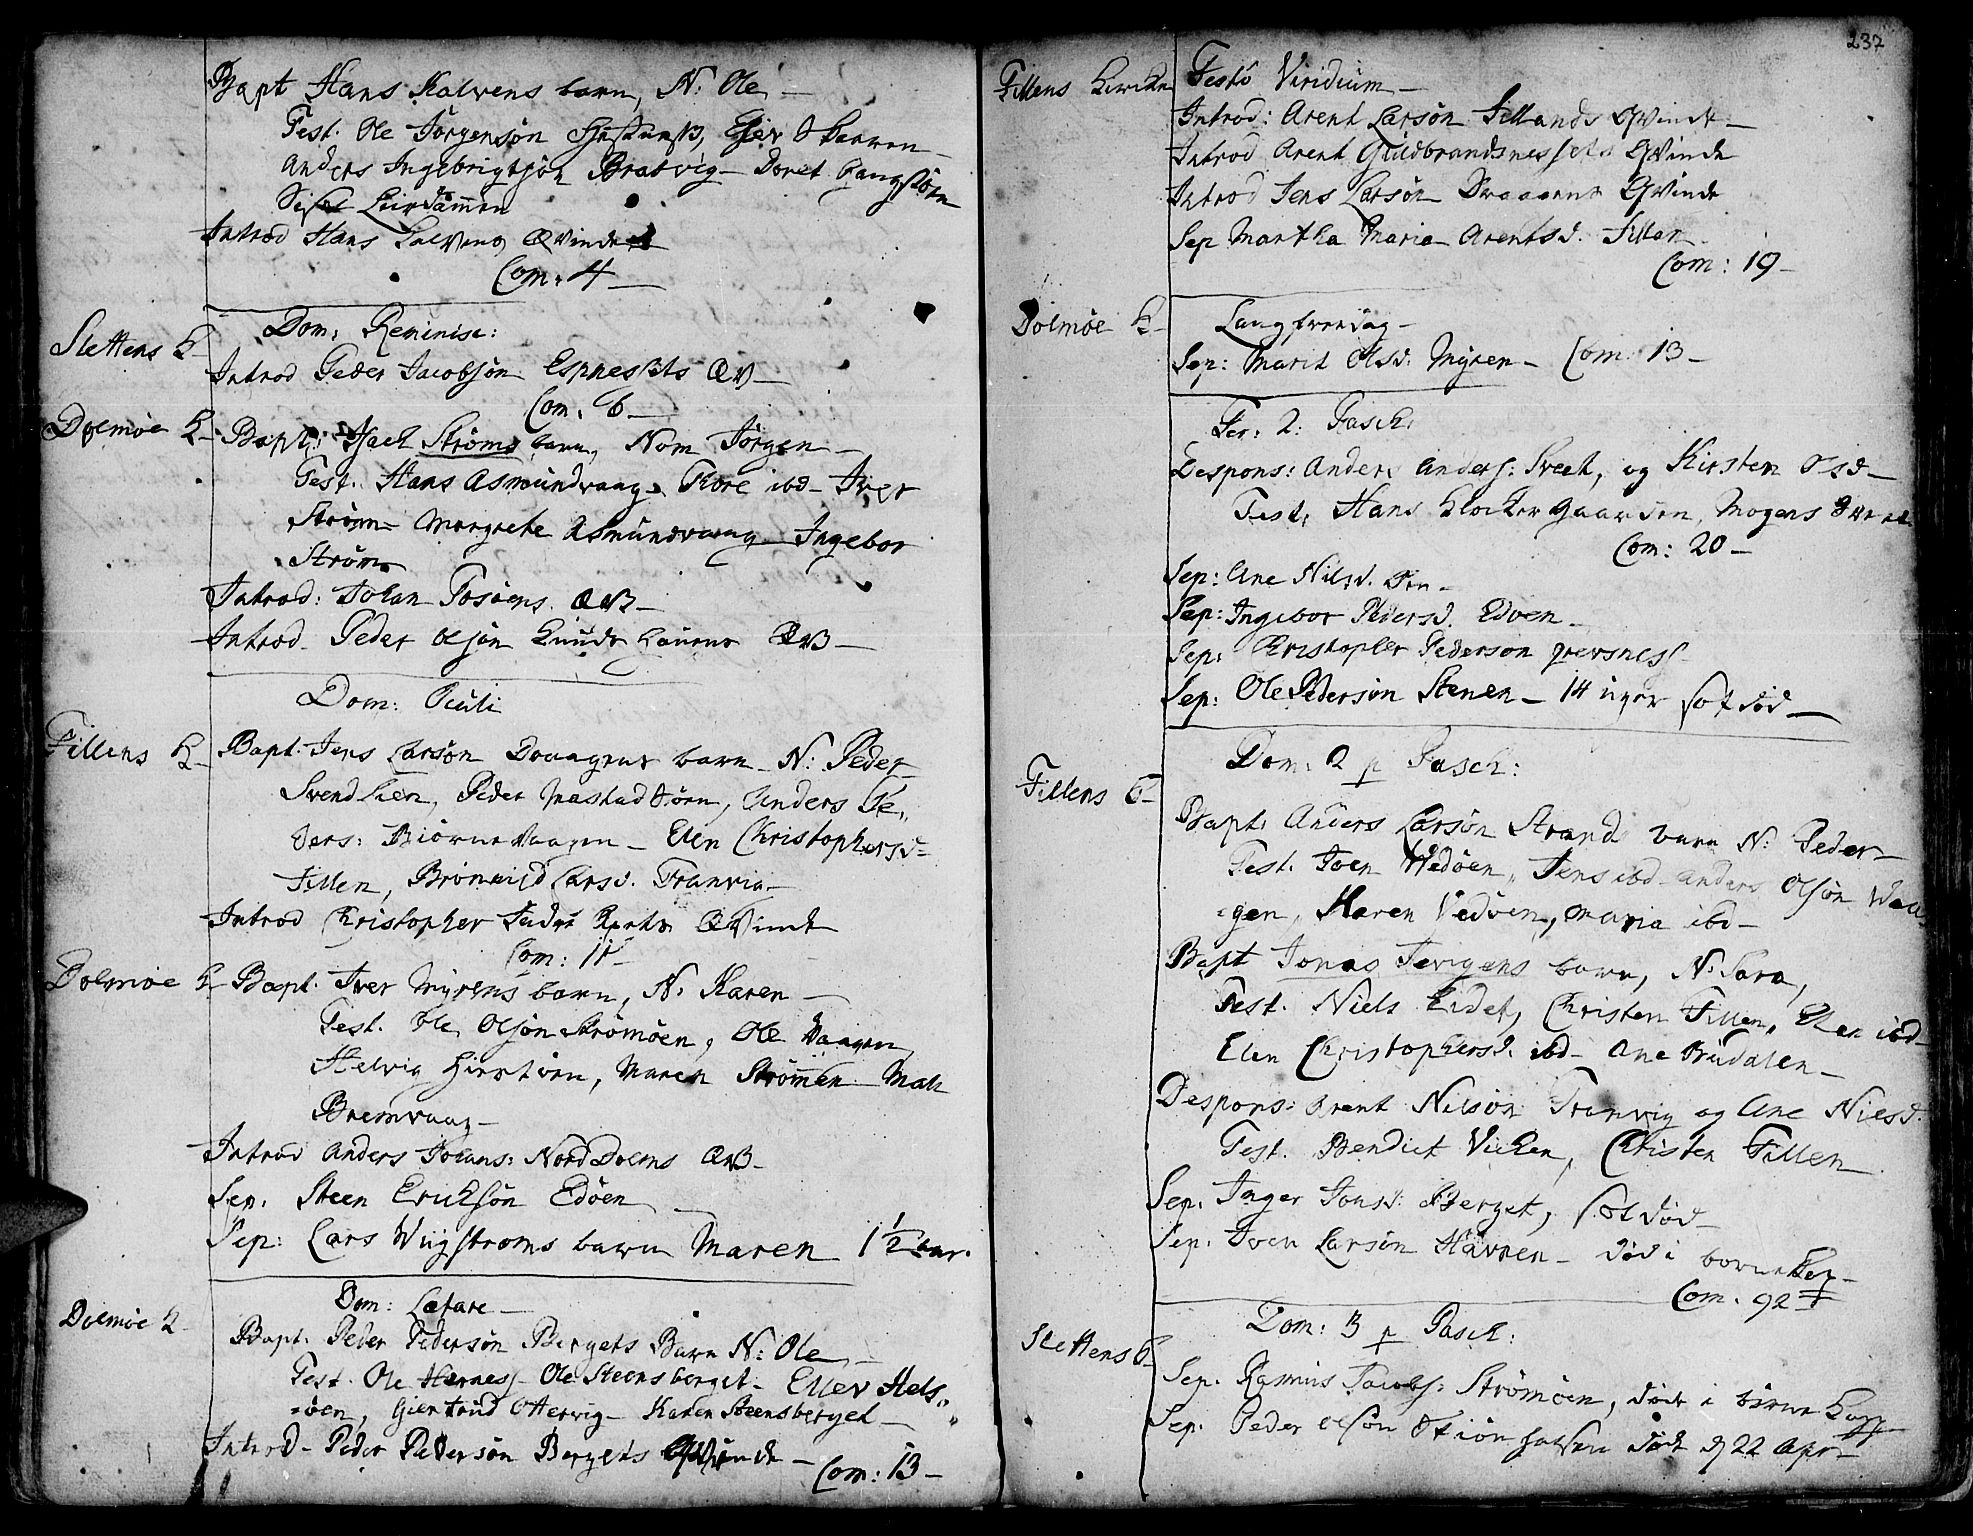 Bapt Hans Kalvens barn, N: Ole —
Test. Ole Jörgensön
Anders Ingebrigtsön Bratvig — Doret
Sisel Leirdammen
Introd Hans Kalvens Qvinde
Com: 4 —
Slettens K — Dom: Reminisc:
Introd Peder Jacobsön Espnessets QV —
Com. 6 —
Dolmöe K — Bapt: Ströms barn, Nom Jörgen —
Test. Hans Asmundvaag, Tore ibd — Iver
Ström — Margrete Asmundvaag — Ingebor
Ström
Introd: Johan Tosöens QV —
Introd. Peder Olsön QV —
Dom: Oculi
Fillens K — Bapt. Jens Larsön Draagens barn — N: Peder
Svend, Peder, Anders Pe,,
ders: Biörnevaagen — Elen Christophersd —
Fillen, Brönnild Larsd. Tranvig —
Introd Christopher Qvinde
Com: 11 —
Dolmöe K — Bapt. Iver Myrens barn, N. Karen —
Test. Ole Olsön Strömöen, Ole Vaagen
Helvig, Maren Strömmen Mali
Bremvaag —
Introd Anders Johans: Nord Dolms QV —
Sep. Steen Ericksön Edöen —
Sep: Lars Wugströms barn Maren 1 1/2 aar.
Dolmöe K — Dom: Lætare —
Bapt. Peder Pedersön Bergets Barn N: Ole —
Test. Ole Hernes — Ole Steensberget — Ellev Hels,,
,,öen, Giertrud Ottervig — Karen Steensberget —
Introd — Peder Pedersön Bergets Qvinde —
Com: 13 —
237
Fillens Kircke Festo Viridium —
Introd: Arent Larsön Fillands Qvinde —
Introd Arent Guldbrandsnessets Qvinde
Introd Jens Larsön Draagens Qvinde
Sep Martha Maria Arentsd. Fillen —
Com: 19 —
Dolmöe K — Langfredag —
Sep: Marit Olsd: Myren — Com: 13 —
Fer: 2: Pasch:
Despons: Anders Anders: Sveet, og Kirsten Olsd —
Test. Hans Klocker gaarden, Mogens Sveet
Com: 20 —
Sep: Ane Nilsd.
Sep: Ingebor Pedersd. Edöen —
Sep: Christopher Pedersön
Sep: Ole Pedersön Stenen — 14 uger sot död —
Fillens K — Dom: 2 p Pasch:
Bapt: Anders Larsön Strands barn N: Peder —
Test. Joen Wedöen, Jens ibd — Anders Olsön Waa,,
,,gen, Karen Vedöen, Maria ibd —
Bapt Jonas Tevigens barn, N: Sara,
Test. Niels Eidet, Christen Fillen, Elen ibd —
Elen Christophersd. ibd — Ane Brudalen —
Despons: Arent Nilsön Tranvig og Ane Nielsd.
Test. Bendict Vicken, Christen Fillen
Sep. Inger Jonsd: Berget, sot död —
Sep. Iven Larsön Havnen — död i
Com. 92 —
Slettens K — Dom: 3 p Pasch:
Sep. Rasmus Jacobs: Strömöen, död i börne
Sep: Peder Olsön död d 22 Apr —